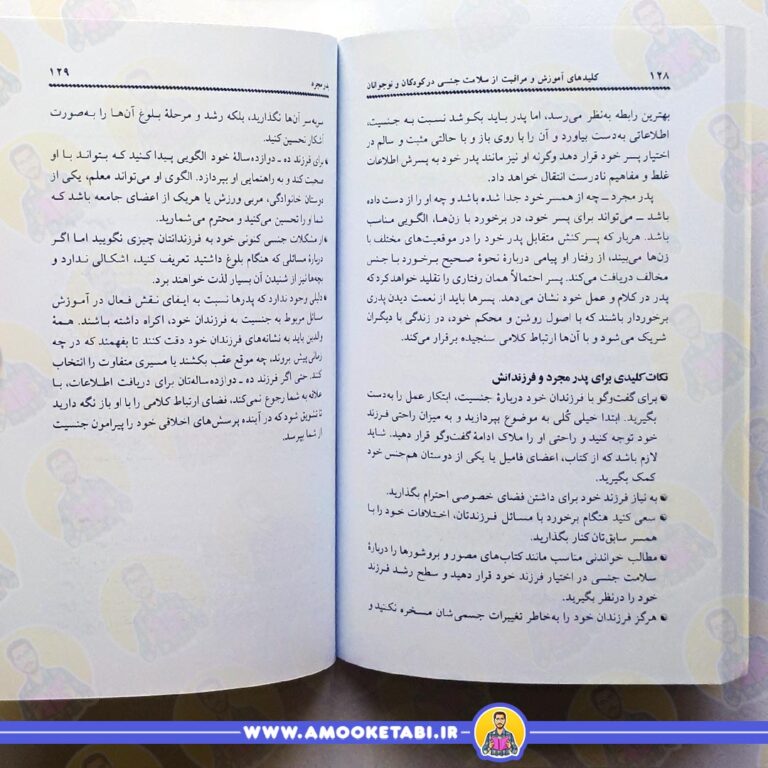 ۱۲۸
کلیدهای آموزش و مراقبت از سلامت جنسی در کودکان و نوجوانان
بهترین رابطه به‌نظر می‌رسد، اما پدر باید بکوشد نسبت به جنسیت،
اطلاعاتی به‌دست بیاورد و آن را با روی باز و با حالتی مثبت و سالم در
اختیار پسر خود قرار دهد وگرنه او نیز مانند پدر خود به پسرش اطلاعات
غلط و مفاهیم نادرست انتقال خواهد داد.
پدر مجرد ـ چه از همسر خود جدا شده باشد و چه او را از دست داده
باشد ـ می‌تواند برای پسر خود، در برخورد با زن‌ها، الگویی مناسب
باشد. هربار که پسر کنش متقابل پدر خود را در موقعیت‌های مختلف با
زن‌ها می‌بیند، از رفتار او پیامی دربارهٔ نحوهٔ صحیح برخورد با جنس
مخالف دریافت می‌کند. پسر احتمالاً همان رفتاری را تقلید خواهد کرد که
پدر در کلام و عمل خود نشان می‌دهد. پسرها باید از نعمت دیدن پدری
برخوردار باشند که با اصول روشن و محکم خود، در زندگی با دیگران
شریک می‌شود و با آن‌ها ارتباط کلامی سنجیده برقرار می‌کند.
نکات کلیدی برای پدر مجرد و فرزندانش
● برای گفت‌وگو با فرزندان خود دربارهٔ جنسیت، ابتکار عمل را به‌دست
بگیرید. ابتدا خیلی کُلی به موضوع بپردازید و به میزان راحتی فرزند
خود توجه کنید و راحتی او را ملاک ادامهٔ گفت‌وگو قرار دهید. شاید
لازم باشد که از کتاب، اعضای فامیل یا یکی از دوستان هم‌جنس خود
کمک بگیرید.
● به نیاز فرزند خود برای داشتن فضای خصوصی احترام بگذارید.
● سعی کنید هنگام برخورد با مسائل فرزندتان، اختلافات خود را با
همسر سابق‌تان کنار بگذارید.
● مطالب خواندنی مناسب مانند کتاب‌های مصور و بروشورها را دربارهٔ
سلامت جنسی در اختیار فرزند خود قرار دهید و سطح رشد فرزند
خود را درنظر بگیرید.
● هرگز فرزندان خود را به‌خاطر تغییرات جسمی‌شان مسخره نکنید و
پدر مجرد
۱۲۹
سربه‌سر آن‌ها نگذارید، بلکه رشد و مرحلهٔ بلوغ آن‌ها را به‌صورت
آشکار تحسین کنید.
● برای فرزند ده ـ دوازده‌سالهٔ خود الگویی پیدا کنید که بتواند با او
صحبت کند و به راهنمایی او بپردازد. الگوی او می‌تواند معلم، یکی از
دوستان خانوادگی، مربی ورزش یا هریک از اعضای جامعه باشد که
شما او را تحسین می‌کنید و محترم می‌شمارید.
● از مشکلات جنسی کنونی خود به فرزندانتان چیزی نگویید اما اگر
دربارهٔ مسائلی که هنگام بلوغ داشتید تعریف کنید، اشکالی ندارد و
بچه‌ها نیز از شنیدن آن بسیار لذت خواهند برد.
● دلیلی وجود ندارد که پدرها نسبت به ایفای نقش فعال در آموزش
مسائل مربوط به جنسیت به فرزندان خود، اکراه داشته باشند. همهٔ
والدین باید به نشانه‌های فرزندان خود دقت کنند تا بفهمند که در چه
زمانی پیش بروند، چه موقع عقب بکشند یا مسیری متفاوت را انتخاب
کنند. حتی اگر فرزند ده ـ دوازده‌ساله‌تان برای دریافت اطلاعات، با
علاقه به شما رجوع نمی‌کند، فضای ارتباط کلامی را با او باز نگه دارید
تا تشویق شود که در آینده پرسش‌های اخلاقی خود را پیرامون جنسیت
از شما بپرسد.
WWW.AMOOKETABI.IR